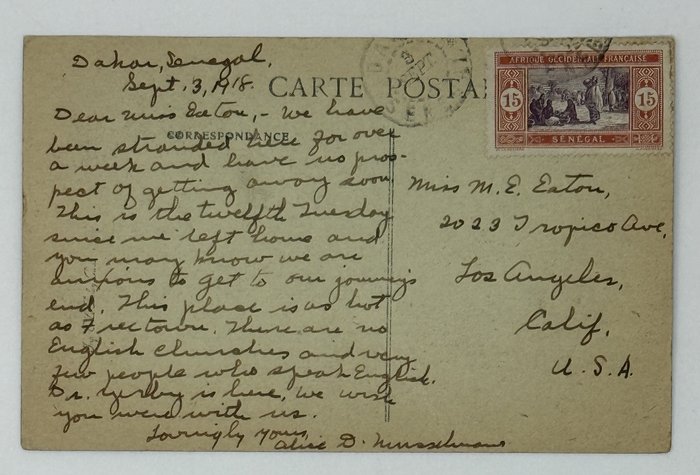 Dakar, Senegal,
Sept. 3, 1918.
CARTE POSTA
AFRIQUE OCCIDENTALE FRANÇAISE
15
15
SÉNÉGAL
CORRESPONDANCE
Dear Miss Eaton,- We have
been stranded here for over
a week and have no pros-
pect of getting away soon
This is the twelfth Tuesday
since we left home and
you may know we are
anxious to get to our journey's
end. This place is as hot
as Freetown. There are no
English churches and very
few people who speak English.
Dr. is here. We wish
you were with us.
Lovingly yours,
Alice D. Musselman
Miss M. E. Eaton,
2023 Tropico Ave,
Los Angeles,
Calif.
U. S. A.